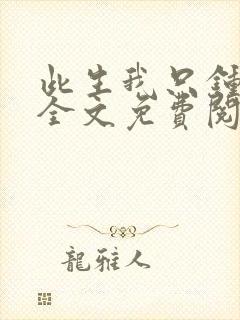 此生我只鍾
全文免費閱
龍雅人